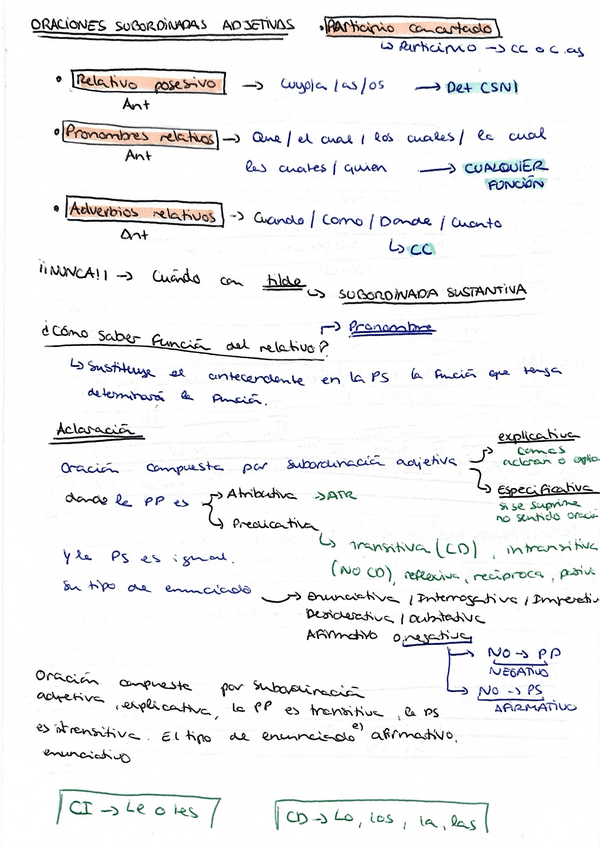 ORACIONES SUBORDINADAS ADJETIVAS
• Participio concertado
↳ Participio → CC o C.
• Relativo posesivo → Cuyo/a/as/os → Det (SN)
Ant
• Pronombres relativos → Que / el cual / los cuales / la cual
Ant
las cuales / quien → CUALQUIER FUNCIÓN
• Adverbios relativos → Cuando / Como / Donde / Cuanto
Ant
↳ CC
¡¡NUNCA!! → Cuándo con tilde ↳ SUBORDINADA SUSTANTIVA
¿Cómo saber función del relativo? → Pronombre
↳ Sustituye el antecendente en la PS la función que tenga
determinará la función.
Aclaración
Oración compuesta por subordinación adjetiva
→ explicativa
comas
aclaran o
→ Especificativa
si se suprime
no sentido
donde la PP es → Atributiva → ATR
→ Predicativa
↳ transitiva (CD), intransitiva
(NO CD), reflexiva, recíproca, pasiva
y la PS es igual.
Su tipo de enunciado → Enunciativa / Interrogativa / Imperativ
Desiderativa / Dubitativa
Afirmativo o negativa
→ NO → PP
NEGATIVO
→ NO → PS
AFIRMATIVO
Oración compuesta por subordinación
adjetiva, explicativa, la PP es transitiva, la PS
es intransitiva. El tipo de enunciado es afirmativo.
enunciativo
CI → Le o les
CD → Lo, los, la, las